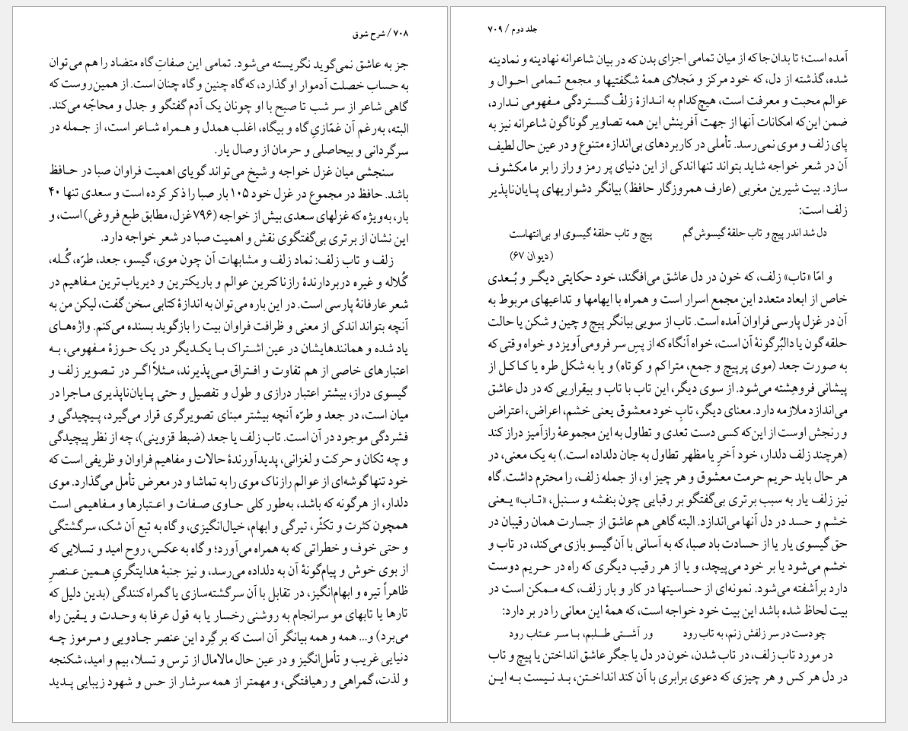 ۷۰۸ / شرح شوق
جز به عاشق نمی‌گوید نگریسته می‌شود. تمامی این صفاتِ گاه متضاد را هم می‌توان
به حساب خصلت آدموار او گذارد، که گاه چنین و گاه چنان است. از همین روست که
گاهی شاعر از سر شب تا صبح با او چونان یک آدم گفتگو و جدل و محاجّه می‌کند.
البته، به‌رغم آن غمّازیِ گاه و بیگاه، اغلب همدل و همراه شاعر است، از جمله در
سرگردانی و بیحاصلی و حرمان از وصال یار.
سنجشی میان غزل خواجه و شیخ می‌تواند گویای اهمیت فراوان صبا در حافظ
باشد. حافظ در مجموع در غزل خود ۱۰۵ بار صبا را ذکر کرده است و سعدی تنها ۴۰
بار، به‌ویژه که غزلهای سعدی بیش از خواجه (۷۹۶ غزل، مطابق طبع فروغی) است، و
این نشان از برتری بی‌گفتگوی نقش و اهمیت صبا در شعر خواجه دارد.
زلف و تاب زلف: نماد زلف و مشابهات آن چون موی، گیسو، جعد، طرّه، گُله،
گُلاله و غیره دربردارندهٔ رازناکترین عوالم و باریکترین و دیریاب‌ترین مفاهیم در
شعر عارفانهٔ پارسی است. در این باره می‌توان به اندازهٔ کتابی سخن گفت، لیکن من به
آنچه بتواند اندکی از معنی و ظرافت فراوان بیت را بازگوید بسنده می‌کنم. واژه‌های
یاد شده و همانندهایشان در عین اشتراک با یکدیگر در یک حوزهٔ مفهومی، به
اعتبارهای خاصی از هم تفاوت و افتراق می‌پذیرند، مثلاً اگر در تصویر زلف و
گیسوی دراز، بیشتر اعتبار درازی و طول و تفصیل و حتی پایان‌ناپذیری ماجرا در
میان است، در جعد و طرّه آنچه بیشتر مبنای تصویرگری قرار می‌گیرد، پیچیدگی و
فشردگی موجود در آن است. تاب زلف یا جعد (ضبط قزوینی)، چه از نظر پیچیدگی
و چه تکان و حرکت و لغزانی، پدیدآورندهٔ حالات و مفاهیم فراوان و ظریفی است که
خود تنها گوشه‌ای از عوالم رازناک موی را به تماشا و در معرض تأمل می‌گذارد. موی
دلدار، از هرگونه که باشد، به‌طور کلی حاوی صفات و اعتبارها و مفاهیمی است
همچون کثرت و تکثّر، تیرگی و ابهام، خیال‌انگیزی، و گاه به تبع آن شک، سرگشتگی
و حتی خوف و خطراتی که به همراه می‌آورد؛ و گاه به عکس، روح امید و تسلایی که
از بوی خوش و پیام‌گونهٔ آن به دلداده می‌رسد، و نیز جنبهٔ هدایتگریِ همین عنصرِ
ظاهراً تیره و ابهام‌انگیز، در تقابل با آن سرگشته‌سازی یا گمراه کنندگی (بدین دلیل که
تارها یا تابهای مو سرانجام به روشنی رخسار یا به قول عرفا به وحدت و یقین راه
می‌برد) و... همه و همه بیانگر آن است که بر گِرد این عنصر جادویی و مرموز چه
دنیایی غریب و تأمل‌انگیز و در عین حال مالامال از ترس و تسلا، بیم و امید، شکنجه
و لذت، گمراهی و رهیافتگی، و مهمتر از همه سرشار از حس و شهود زیبایی پدید
جلد دوم / ۷۰۹
آمده است؛ تا بدان‌جا که از میان تمامی اجزای بدن که در بیان شاعرانه نهادینه و نمادینه
شده، گذشته از دل، که خود مرکز و مَجلای همهٔ شگفتیها و مجمع تمامی احوال و
عوالم محبت و معرفت است، هیچ‌کدام به اندازهٔ زلف گستردگی مفهومی ندارد،
ضمن این‌که امکانات آنها از جهت آفرینش این همه تصاویر گوناگون شاعرانه نیز به
پای زلف و موی نمی‌رسد. تأملی در کاربردهای بی‌اندازه متنوع و در عین حال لطیف
آن در شعر خواجه شاید بتواند تنها اندکی از این دنیای پر رمز و راز را بر ما مکشوف
سازد. بیت شیرین مغربی (عارف همروزگار حافظ) بیانگر دشواریهای پایان‌ناپذیر
زلف است:
دل شد اندر پیچ و تاب حلقهٔ گیسوش گم پیچ و تاب حلقهٔ گیسوی او بی‌انتهاست
(دیوان ۶۷)
و امّا «تاب» زلف، که خون در دل عاشق می‌افگند، خود حکایتی دیگر و بُعدی
خاص از ابعاد متعدد این مجمع اسرار است و همراه با ایهامها و تداعیهای مربوط به
آن در غزل پارسی فراوان آمده است. تاب از سویی بیانگر پیچ و چین و شکن یا حالت
حلقه گون یا دالبُرگونهٔ آن است، خواه آنگاه که از پسِ سر فرو می‌آویزد و خواه وقتی که
به صورت جعد (موی پرپیچ و جمع، متراکم و کوتاه) و یا به شکل طره یا کاکل از
پیشانی فروهِشته می‌شود. از سوی دیگر، این تاب با تاب و بیقراریی که در دل عاشق
می‌اندازد ملازمه دارد. معنای دیگر، تابِ خود معشوق یعنی خشم، اعراض، اعتراض
و رنجش اوست از این‌که کسی دست تعدی و تطاول به این مجموعهٔ رازآمیز دراز کند
(هرچند زلف دلدار، خود آخرِ یا مظهر تطاول به جان دلداده است.) به یک معنی، در
هر حال باید حریم حرمت معشوق و هر چیز او، از جمله زلف، را محترم داشت. گاه
نیز زلف یار به سبب برتری بی‌گفتگو بر رقبایی چون بنفشه و سنبل، «تاب» یعنی
خشم و حسد در دل آنها می‌اندازد. البته گاهی هم عاشق از جسارت همان رقیبان در
حق گیسوی یار یا از حسادت باد صبا، که به آسانی با آن گیسو بازی می‌کند، در تاب و
خشم می‌شود یا بر خود می‌پیچد، و یا از هر رقیب دیگری که راه در حریم دوست
دارد برآشفته می‌شود. نمونه‌ای از حساسیتها در کار و بار زلف، که ممکن است در
بیت لحاظ شده باشد این بیت خود خواجه است، که همهٔ این معانی را در بر دارد:
چو دست در سر زلفش زنم، به تاب رود ور آشتی طلبم، با سر عتاب رود
در مورد تاب زلف، در تاب شدن، خون در دل یا جگر عاشق انداختن یا پیچ و تاب
در دل هر کس و هر چیزی که دعوی برابری با آن کند انداختن، بد نیست به این